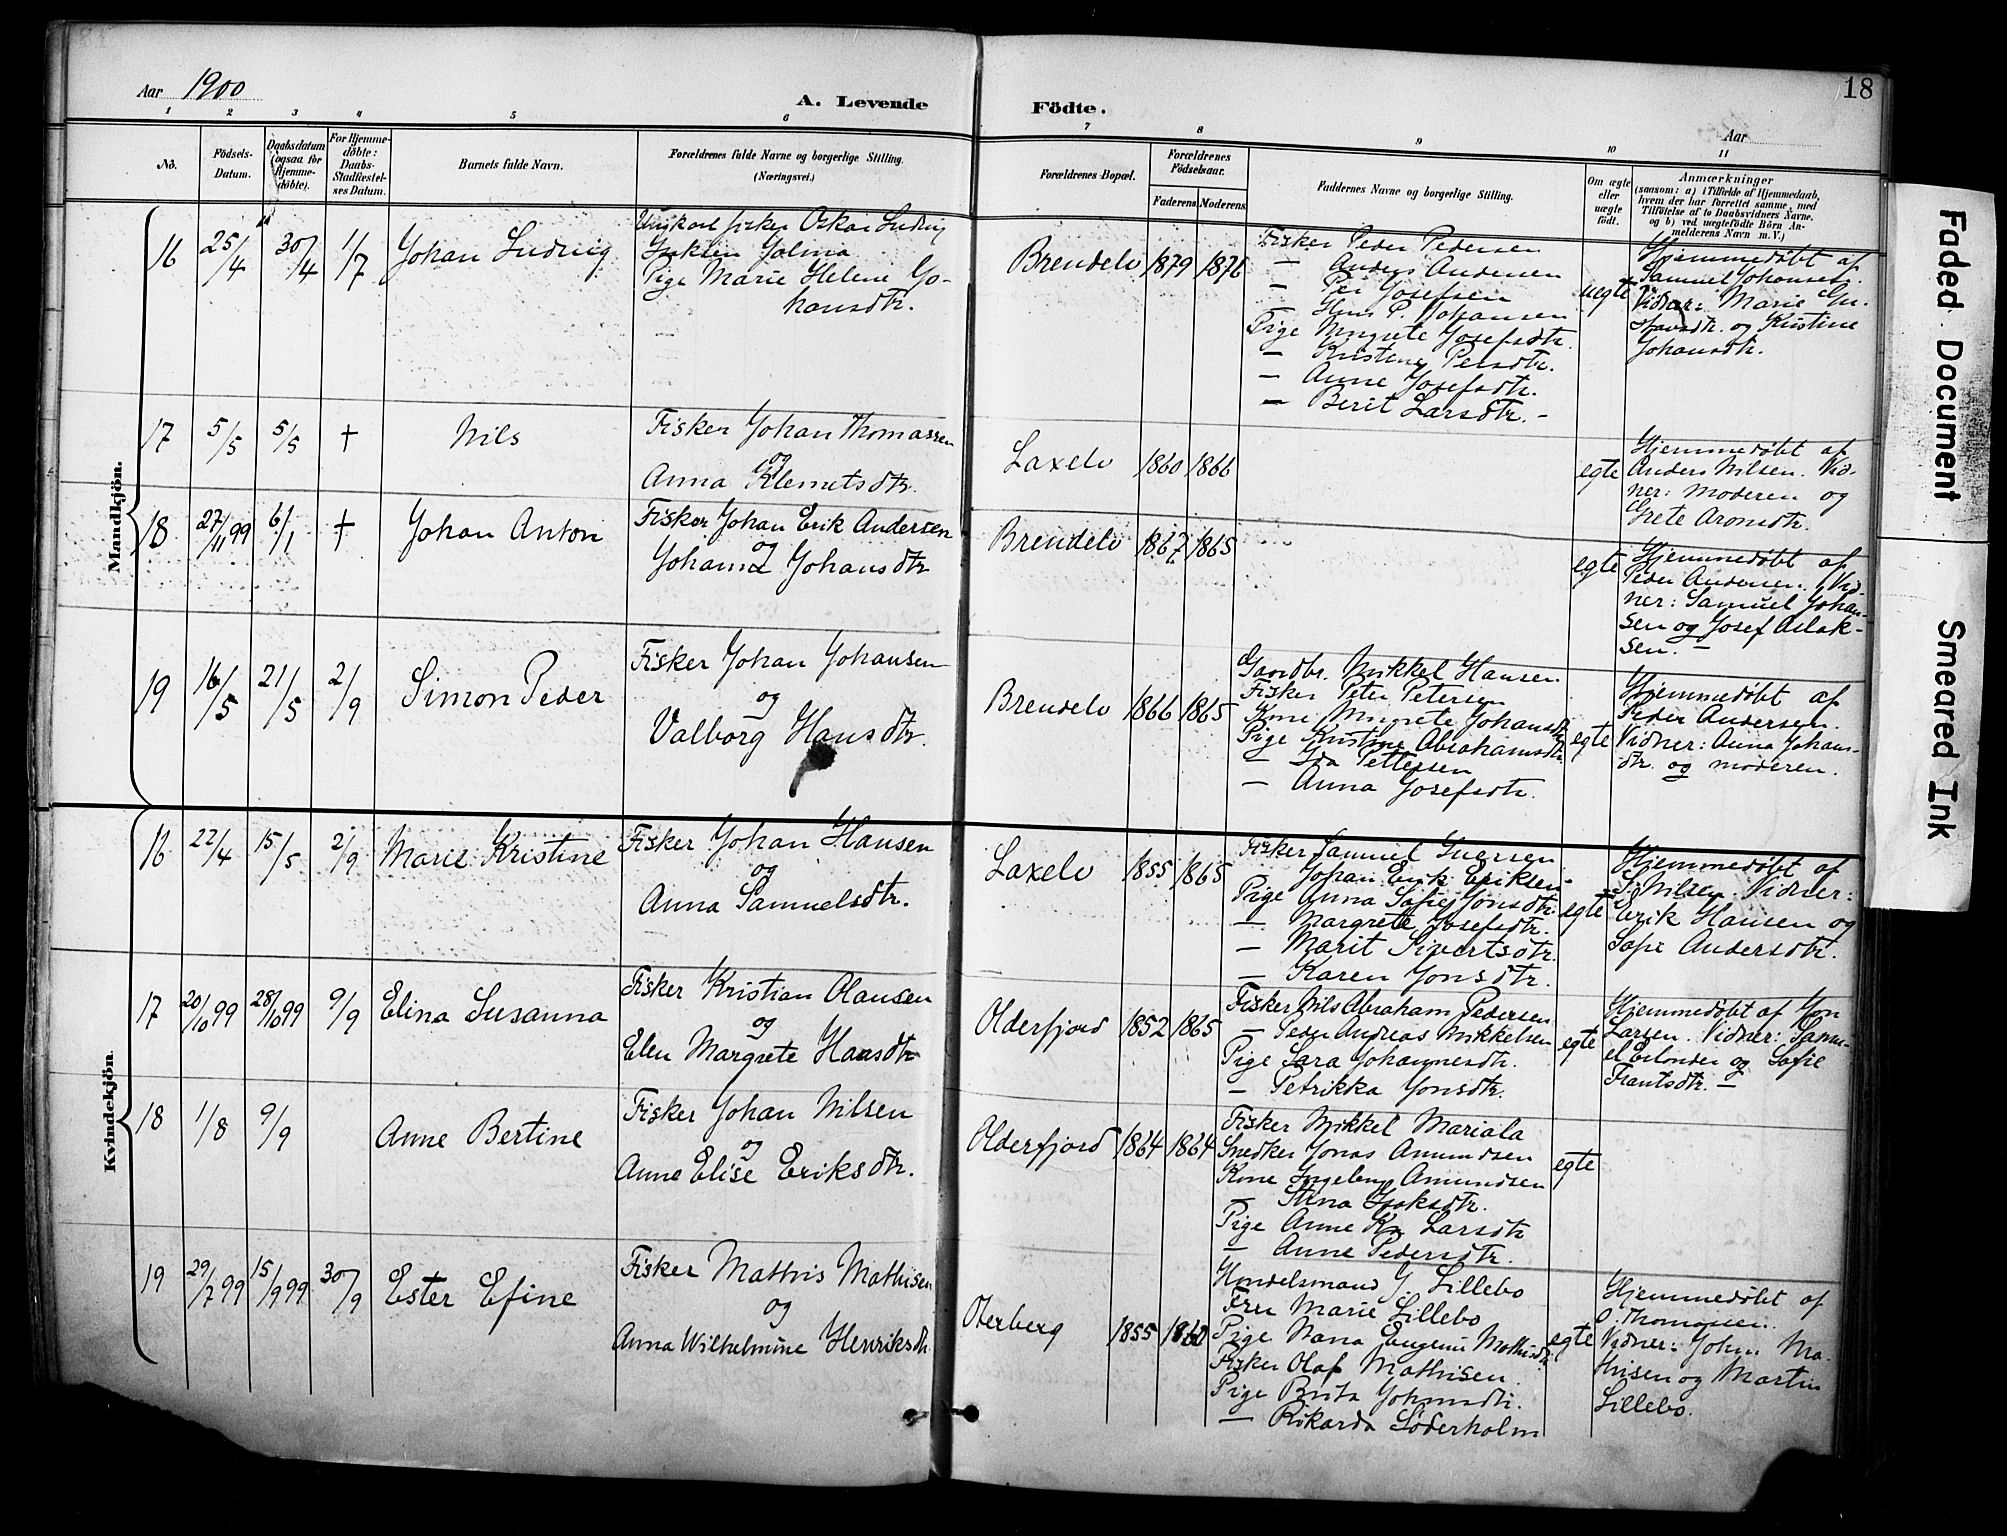 Aar 1900
A. Levende
Födte.
18
Aar
1 2 3 4 5 6 7 8 9 10 11
No.
Födsels-Datum.
Daabsdatum (ogsaa for Hjemme-döbte).
For Hjemme-döbte: Daabs-Stadfæstel-ses Datum.
Barnets fulde Navn.
Forældrenes fulde Navne og borgerlige Stilling. (Næringsvei.)
Forældrenes Bopæl.
Forældrenes Födselsaar.
Faderens. Moderens.
Faddernes Navne og borgerlige Stilling.
Om ægte eller uægte født.
Anmærkninger
(saasom: a) i Tilfælde af Hjemmedaab, hvem der har forrettet samme, med Tilföielse af to Daabsvidners Navne, og b) ved uægtefödte Börn An-melderens Navn m. V.)
Mandkjön.
16 25/4 30/4 1/7 Johan Ludvig
Ungkarl fisker Oskar Ludvig
Isaksen
Pige Marie Helene Jo-
hansdtr.
Brendelv 1879 1876
Fisker Peder Pedersen
— Anders Andersen
— Per Josefsen
— Hans P. Johansen
Pige Margrete Josefsdtr.
— Kristine Persdtr.
— Anne Josefsdtr.
— Berit Larsdtr. -
uegte
Hjemmedøbt af
Samuel Johansen.
Vidner: Marie Gu-
stavsdtr. og Kristine
Johansdtr.
17 5/5 5/5 † Nils
Fisker Johan Thomassen
og
Anna Klemetsdtr.
Laxelv 1860 1866
egte
Hjemmedøbt af
Anders Nilsen. Vid-
ner: Moderen og
Grete Aronsdtr.
18 27/11 99 6/1 † Johan Anton
Fisker Johan Erik Andersen
og
Johanna Johansdtr
Brendelv 1867 1865
egte
Hjemmedøbt af
Peder Andersen. Vid-
ner: Samuel Johan-
sen og Josef Aslak-
sen. —
19 16/5 21/5 2/9 Simon Peder
Fisker Johan Johansen
og
Valborg Hansdtr.
Brendelv 1866 1865
Gaardbr. Mikkel Hansen
Fisker Peter Petersen
Kone Margrete Johansdtr
Pige Kristine Abrahamsdtr.
— Ida Pettersen
— Anna Josefsdtr.
egte
Hjemmedøbt af
Peder Andersen.
Vidner: Anna Johans-
dtr. og moderen.
Kvindekjön.
16 22/4 15/5 2/9 Marie Kristine
Fisker Johan Hansen
og
Anna Samuelsdtr.
Laxelv 1855 1865
Fisker Samuel Iversen
Johan Erik Eriksen
Pige Anna Sofie Jonsdtr.
— Margrete Josefsdtr.
— Marit Sivertsdtr.
— Karen Jonsdtr.
egte
Hjemmedøbt af
S. Nilsen. Vidner:
Erik Hansen og
Sofie Andersdtr.
17 20/10 99 28/10 99 9/9 Elina Susanna
Fisker Kristian Olausen
og
Elen Margrete Hansdtr
Olderfjord 1852 1865
Fisker Nils Abraham Pedersen
— Peder Andreas Mikkelsen
Pige Sara Johannesdtr.
— Petrikka Jonsdtr.
egte
Hjemmedøbt af Jon
Larsen. Vidner: Samu-
el Erlandsen og Sofie
Frantsdtr. —
18 1/8 9/9 Anne Bertine
Fisker Johan Nilsen
og
Anne Elise Eriksdtr.
Olderfjord 1864 1864
Fisker Mikkel Mariala
Snedker Jonas Amundsen
Kone Ingeborg Amundsen
— Stina Isaksdtr.
Pige Anne Kr. Larsdtr
— Anne Pedersdtr.
egte
19 29/7 99 15/9 99 30/9 Ester Efine
Fisker Mathis Mathisen
og
Anna Wilhelmine Henriksdtr.
Oterberg 1855 1860
Handelsmand G. Lillebo
Fru Marie Lillebo
Pige Nana Eugenie Mathisdtr
Fisker Olaf Mathisen.
Pige Brita Johansdtr.
— Rikarda Söderholm
egte
Hjemmedøbt af
O. Thomassen.
Vidner: John Ma-
thisen og Martin
Lillebo.
Faded Document
Smeared Ink